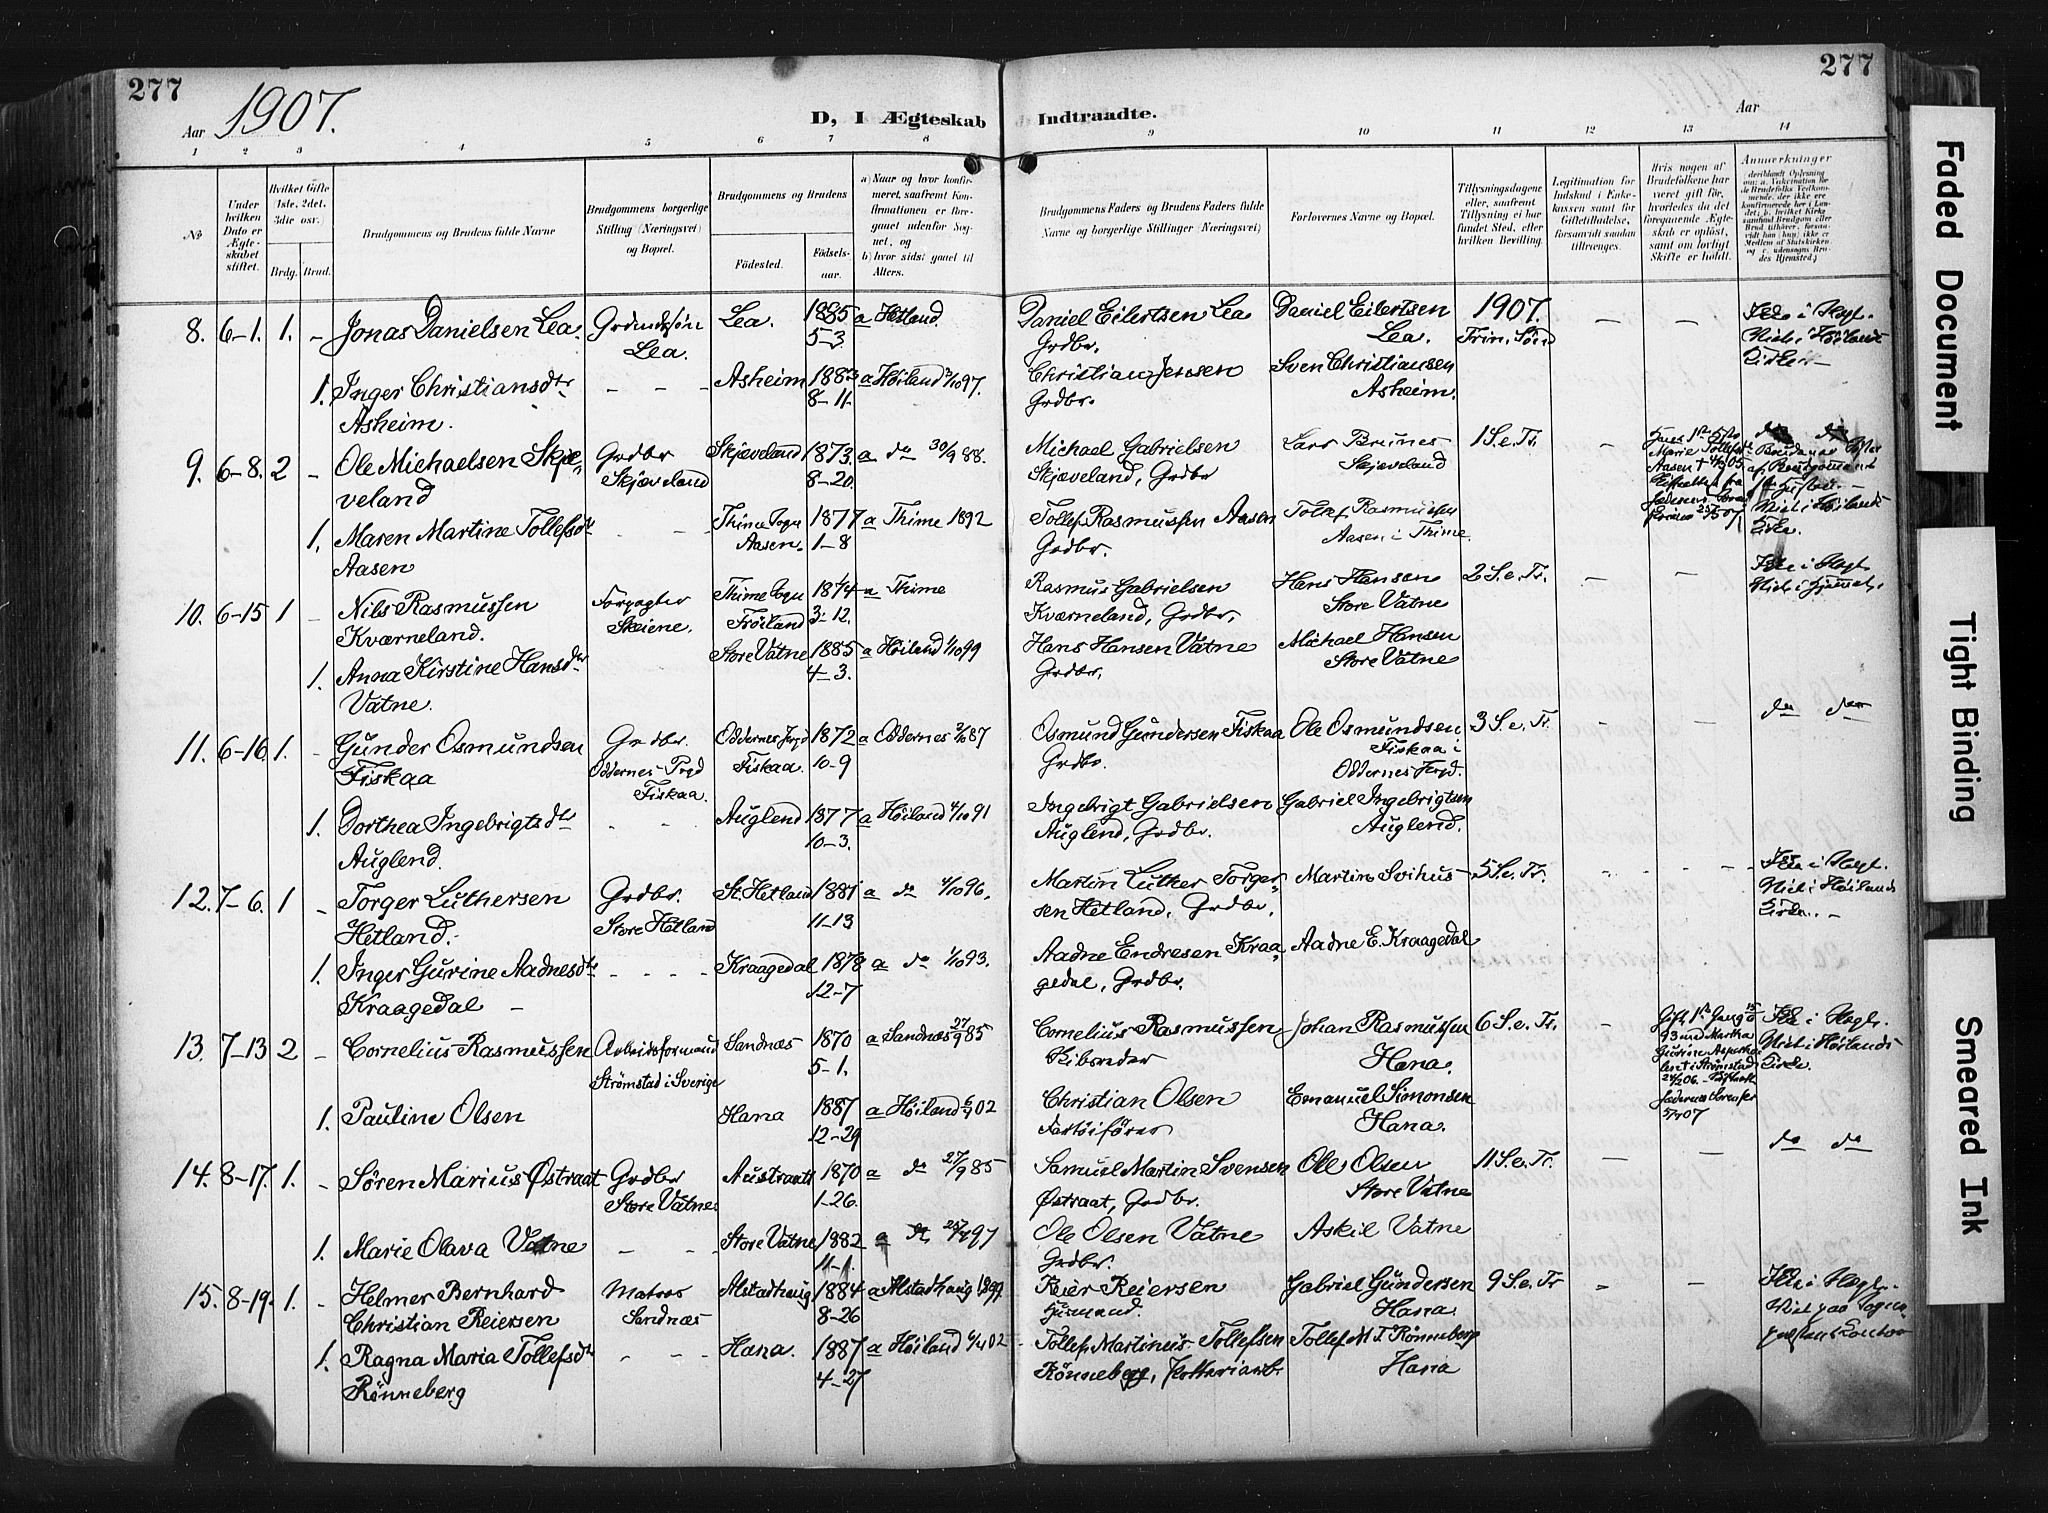 277
277
Aar 1907.
D, I Ægteskab Indtraadte.
Aar
1 2 3 4 5 6 7 8 9 10 11 12 13 14
№
Under hvilken Dato er Ægteskabet stiftet.
Hvilket Gifte (1ste, 2det, 3die osv.)
Brdg. Brud.
Brudgommens og Brudens fulde Navne
Brudgommens borgerlige Stilling (Næringsvei) og Bopæl.
Brudgommens og Brudens
Fødested. Fødselsaar.
a) Naar og hvor konfirmeret, saafremt Konfirmationen er foregaaet udenfor Sognet, og
b) hvor sidst gaaet til Alters.
Brudgommens Faders og Brudens Faders fulde Navne og borgerlige Stillinger (Næringsvei)
Forlovernes Navne og Bopæl.
Tillysningsdagene eller, saafremt Tillysning ei har fundet Sted, efter hvilken Bevilling.
Legitimation for Indskud i Enkekassen samt for Giftetilladelse, forsaavidt saadan tiltrænges.
Hvis nogen af Brudefolkene har været gift før, hvorledes da det foregaaende Ægteskab er opløst, samt om lovligt Skifte er holdt.
Anmærkninger
8. 6–1. 1. – Jonas Danielsen Lea. Grdmdssøn Lea. Lea. 1885 5–3. a Hetland. Daniel Eilertsen Lea Grdbr. Daniel Eilertsen Lea. 1907. Trin. Sønd – –
1. Inger Christiansdtr Asheim. – – – Asheim 1883 8–11. a Høiland 3/10 97. Christian Jensen Grdbr. Sven Christiansen Asheim.
9. 6–8. 2 – Ole Michaelsen Skjæveland Grdbr Skjæveland Skjæveland 1873. 8–20. a do 30/9 88. Michael Gabrielsen Skjæveland, Grdbr Lars Brunes Skjæveland 1 S. e. Tr. –
1. Maren Martine Tollefsdtr Aasen – – Thime Sogn Aasen. 1877 1–8 a Thime 1892 Tollef Rasmussen Aasen Grdbr. Tollef Rasmussen Aasen i Thime.
10. 6–15 1 – Nils Rasmussen Kværneland. Forpagter Skeiene. Thime Sogn Frøiland 1874 3–12. a Thime Rasmus Gabrielsen Kværneland, Grdbr. Hans Hansen Store Vatne 2 S. e. Tr. – –
1. Anna Kirstine Hansdtr Vatne. Store Vatne 1885 4–3. a Høiland 1/10 99 Hans Hansen Vatne Grdbr. Michael Hansen Store Vatne
11. 6–16 1. – Gunder Osmundsen Fiskaa Grdbr. Oddernes Prgd Fiskaa. Oddernes Prgd Fiskaa. 1872 10–9 a Oddernes 2/10 87 Osmund Gundersen Fiskaa Grdbr. Ole Osmundsen Fiskaa i Oddernes Prgd. 3 S. e. Tr. – – do do
1. Dorthea Ingebrigtsdtr Auglend. – – Auglend 1877 10–3. a Høiland 4/10 91 Ingebrigt Gabrielsen Auglend, Grdbr. Gabriel Ingebrigtsen Auglend.
12. 7–6. 1 – Torger Luthersen Hetland. Grdbr. Store Hetland St. Hetland 1881 11–13 a do 4/10 96. Martin Luther Torgersen Hetland, Grdbr. Martin Svihus 5 S. e. Tr.
1. Inger Gurine Aadnesdtr Kraagedal – – – – Kraagedal 1878 12–7 a do 1/10 93. Aadne Endresen Kraagedal, Grdbr. Aadne E. Kraagedal
13. 7–13 2 – Cornelius Rasmussen Arbeidsformand Strømstad i Sverige Sandnæs 1870 5–1. a Sandnæs 27/9 85 Cornelius Rasmussen Johan Rasmussen Hana. 6 S. e. Tr. –
1. Pauline Olsen Hana 1887 12–29 a Høiland 02 Christian Olsen Fartøifører Emanuel Simonsen Hana.
14. 8–17. 1. – Søren Marius Østraat Grdbr Store Vatne Austraat 1870 1–26. a do 27/9 85 Samuel Martin Svensen Østraat, Grdbr. Ole Olsen Store Vatne 11 S. e. Tr. – – do do
1. Marie Olava Vatne – – Store Vatne 1882 11–1. a do 97 Ole Olsen Vatne Grdbr. Askil Vatne
15. 8–19. 1. – Helmer Bernhard Christian Reiersen Matros Sandnæs Alstadhaug 1884 8–26 a Alstadhaug 1899 Reier Reiersen Husmand. Gabriel Gundersen Hana. 9 S. e. Tr – –
1. Ragna Maria Tollefsdtr Rønneberg – – – Hana. 1887 4–27 a Høiland 02 Tollef Martinus Tollefsen Rønneberg, Tollef M. T. Rønneberg Hana
Faded Document
Tight Binding
Smeared Ink